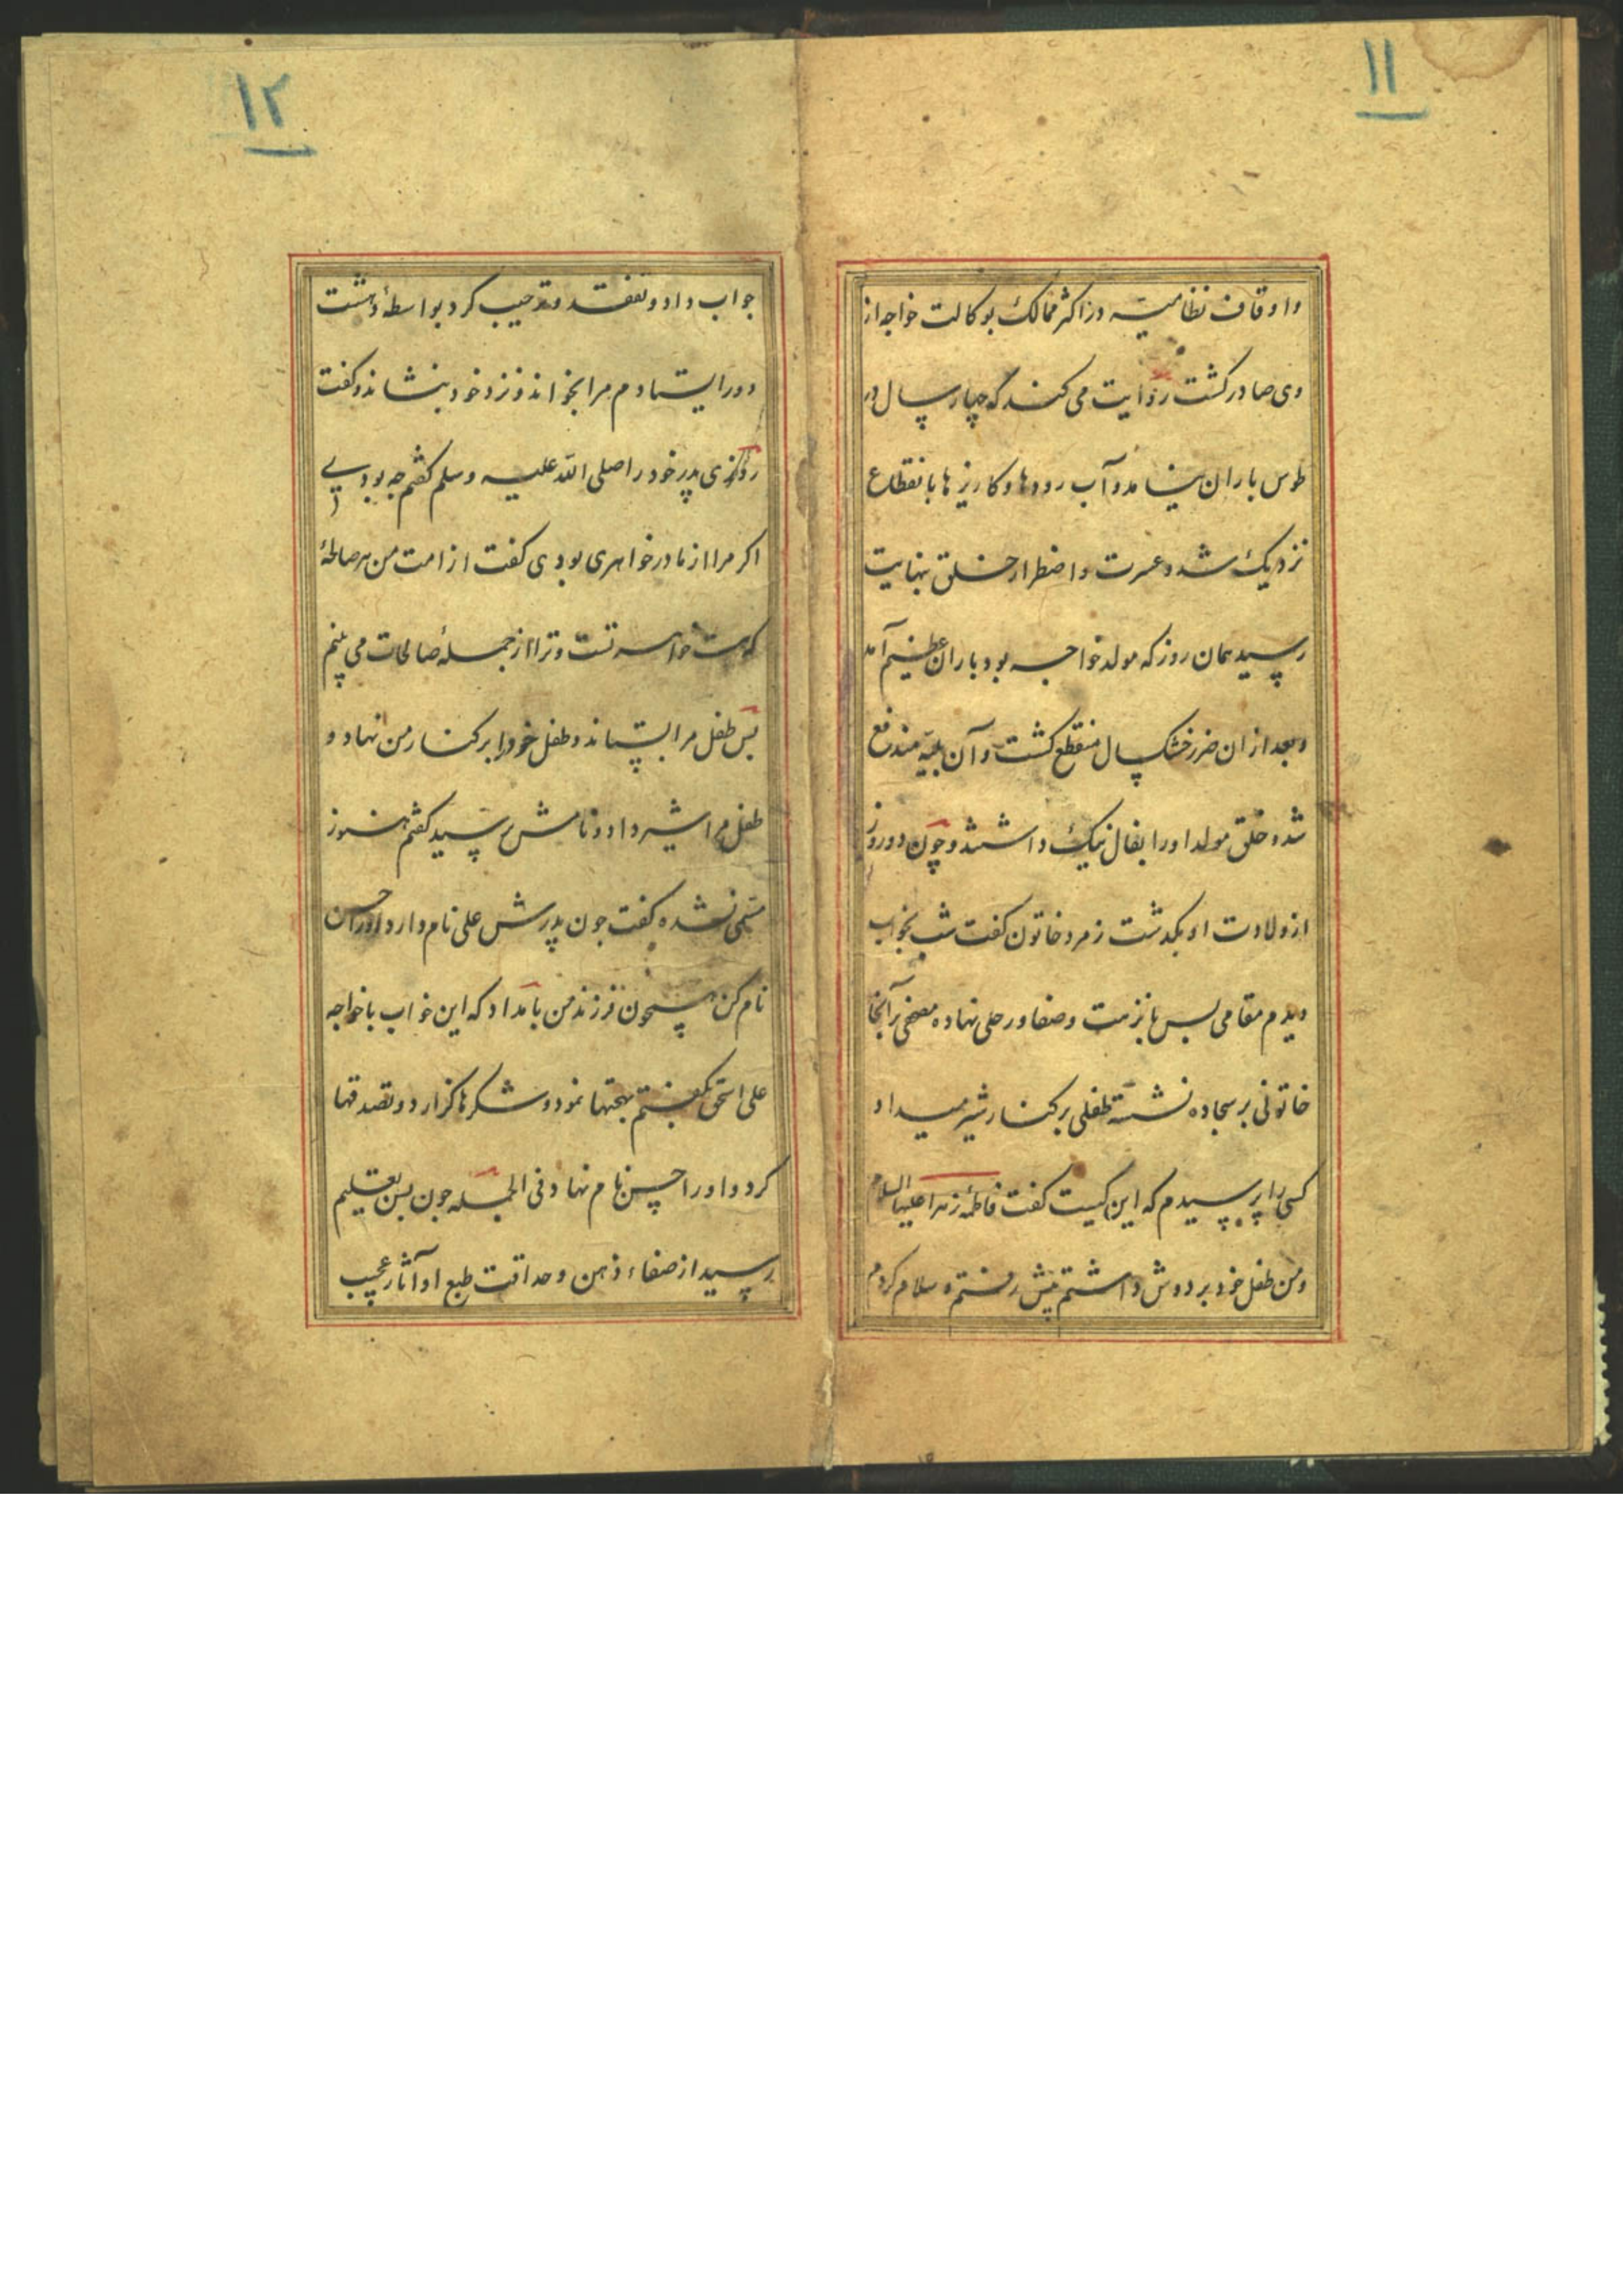 ۱۱
واوقاف نظامیه در اکثر ممالک بوکالت خواجه از
وی صادر کشت روایت می کنند که چهار سال در
طوس باران نیامد و آب رودها و کاریزها بانقطاع
نزدیک شد و عسرت و اضطرار خلق بنهایت
رسید همان روز که مولد خواجه بود باران عظیم آمد
و بعد از ان ضرر خشک سال منقطع کشت و آن بلیه مندفع
شده خلق مولد او را بفال نیک داشتند و چون دو روز
از ولادت او بکدشت زمرد خاتون کفت شب بخواب
دیدم مقامی بس با نزهت و صفا و رحلی نهاده مصحفی بر آنجا
خاتونی بر سجاده نشسته طفلی بر کنار شیر میداد
کسی را پرسیدم که این کیست کفت فاطمهٔ زهرا علیها السلام
و من طفل خود بر دوش داشتم پیش رفتم و سلام کردم
۱۲
جواب داد و تفقد و ترحیب کرد بواسطهٔ دهشت
دور ایستادم مرا بخواند و نزد خود بنشاند و کفت
روزی پدر خود را صلی الله علیه وسلم کفتم چه بودی
اکر مرا از مادر خواهری بودی کفت از امت من هر صالحهٔ
که هست خواهر تست و ترا از جملهٔ صالحات می بینم
بس طفل مرا بستاند و طفل خود را بر کنار من نهاد و
طفل مرا شیر داد و نامش پرسید کفتم هنوز
مسمی نشده کفت جون پدرش علی نام دارد او را حسن
نام کن همچون فرزند من بامداد که این خواب با خواجه
علی اسحق بکفتم بهجتها نمود و شکرها کزارد و تصدقها
کرد و او را حسن نام نهاد فی الجمله جون بسن تعلیم
رسید از صفاء ذهن و حداقت طبع او آثار عجیب